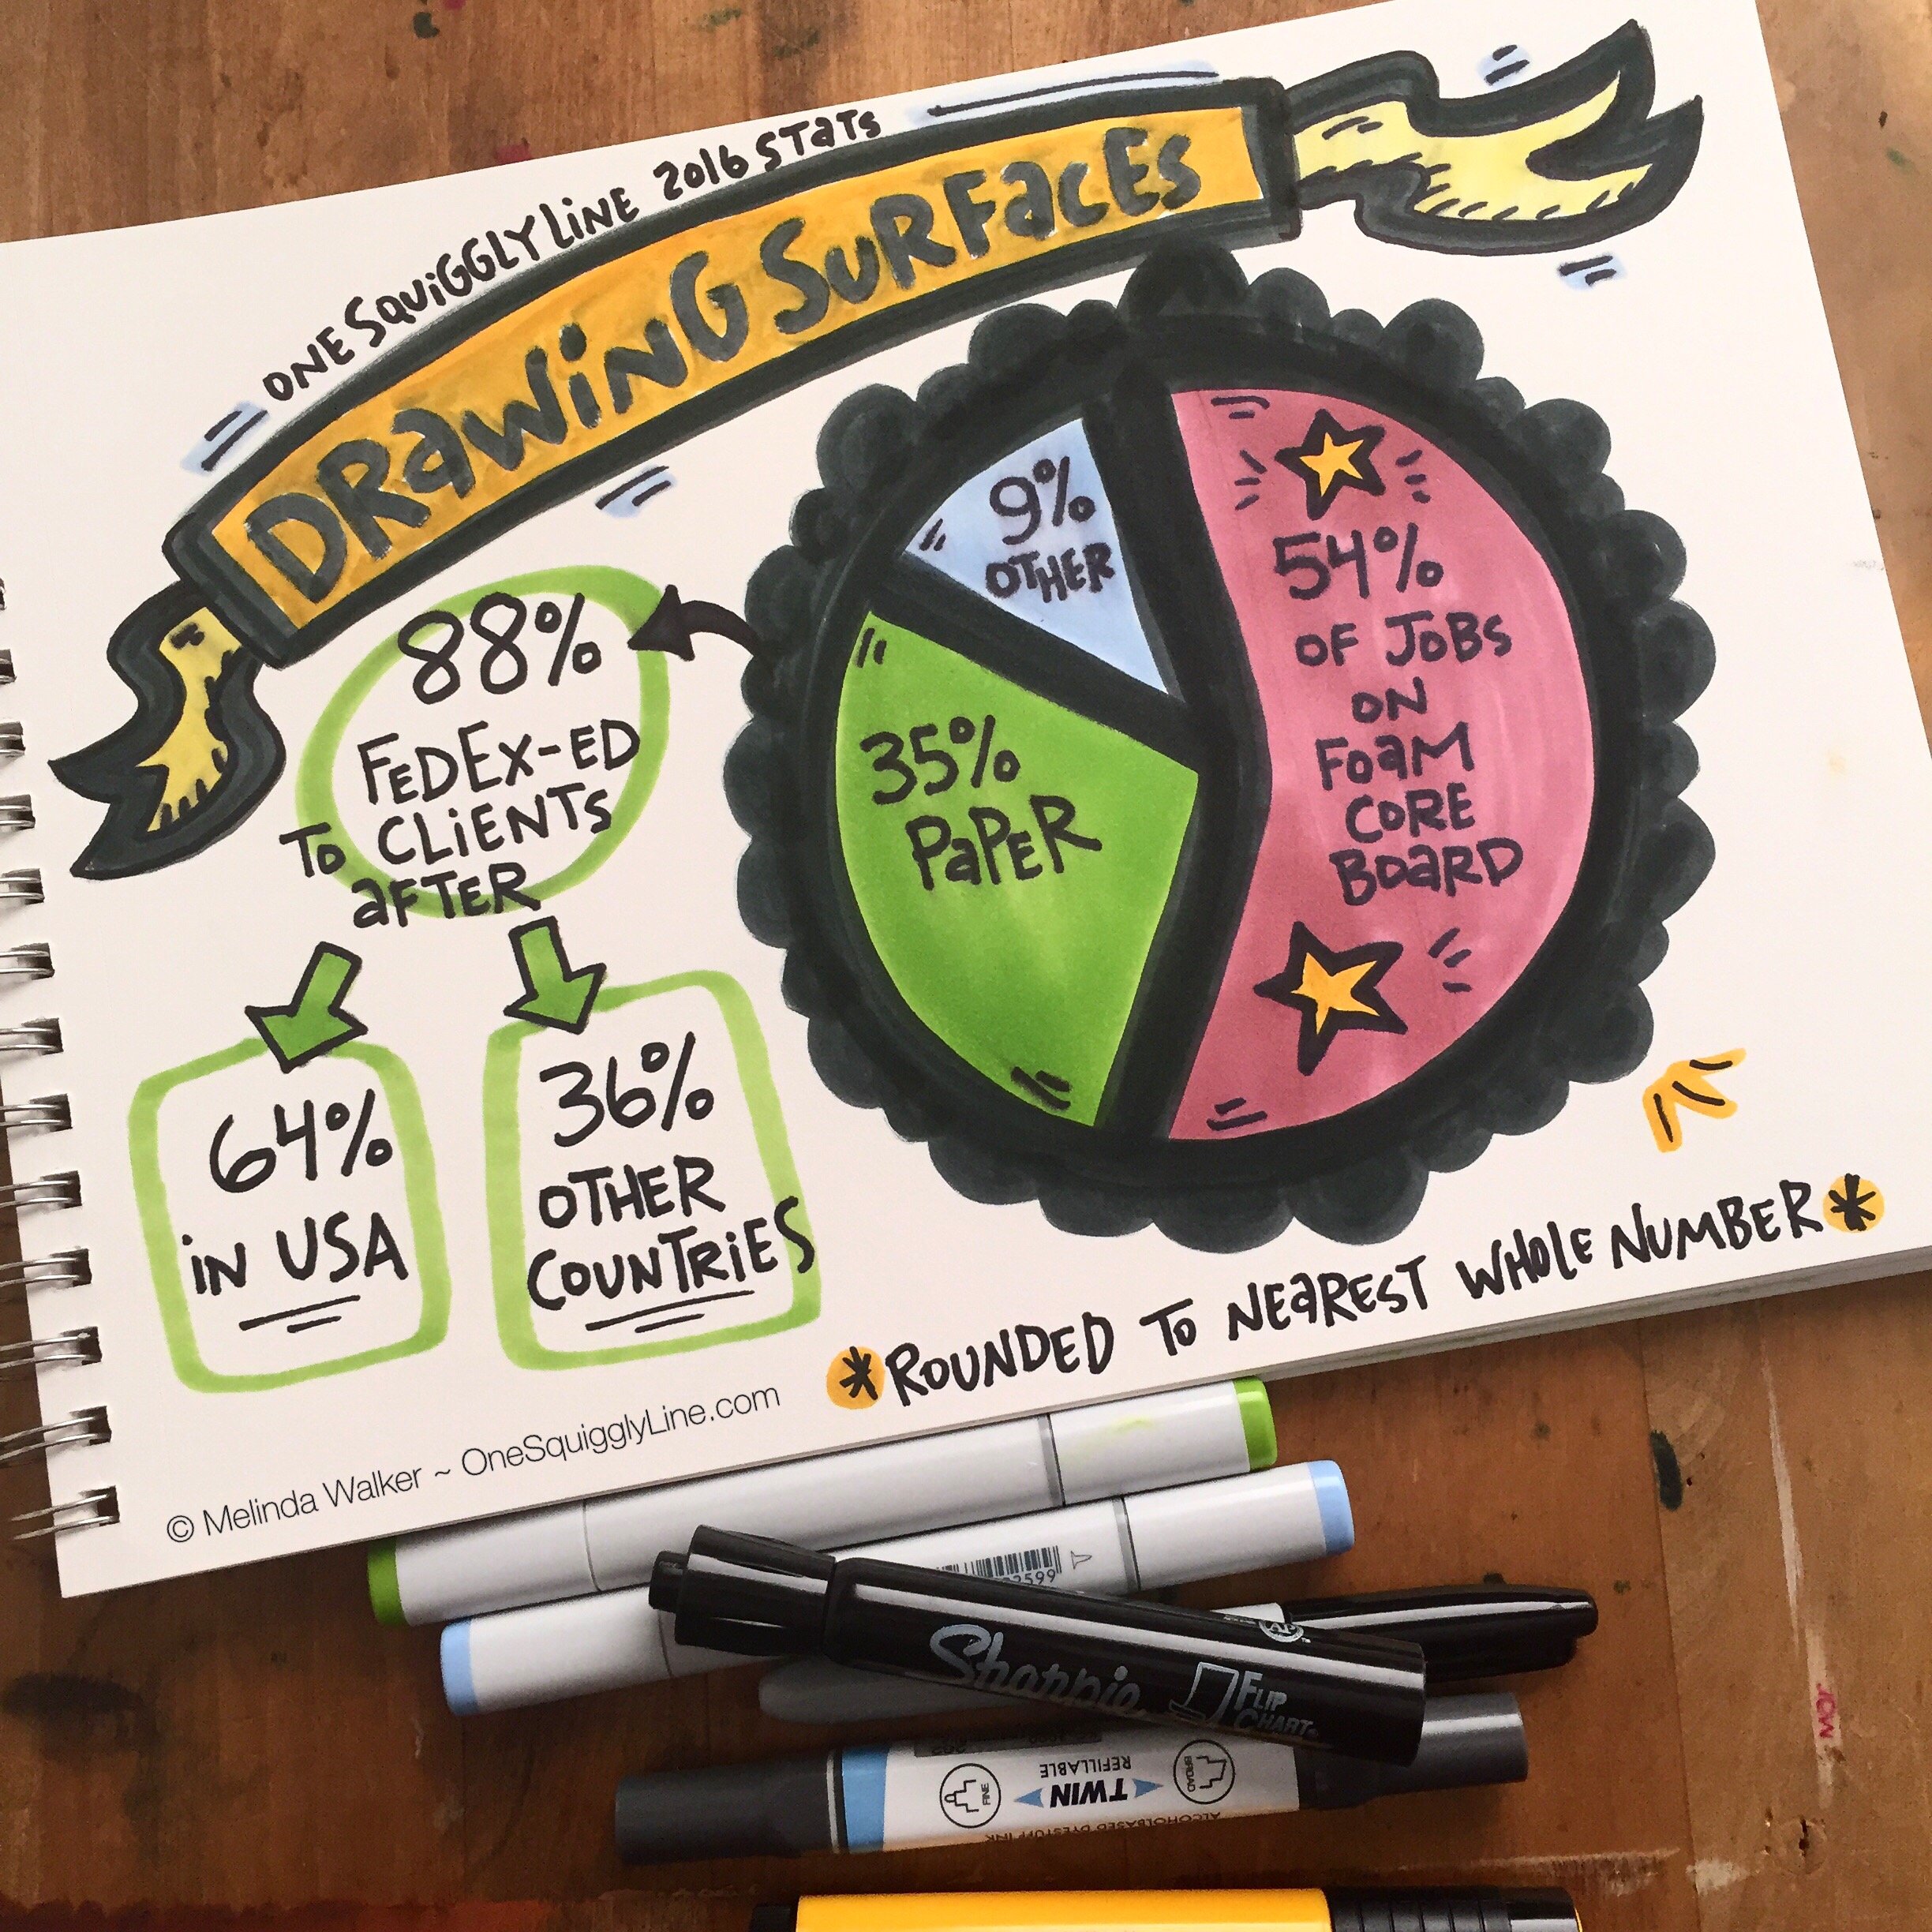 ONE SQUIGGLY LINE 2016 STATS
DRAWING SURFACES
9%
OTHER
54%
OF JOBS
ON
FOAM
CORE
BOARD
35%
PAPER
88%
FEDEX-ED
TO CLIENTS
AFTER
64%
IN USA
36%
OTHER
COUNTRIES
*ROUNDED TO NEAREST WHOLE NUMBER*
© Melinda Walker ~ OneSquigglyLine.com
2599
Sharpie
FLIP
CHART
AP
BROAD
TWIN
REFILLABLE
FINE
ALCOHOLBASED DYESTUFF INK